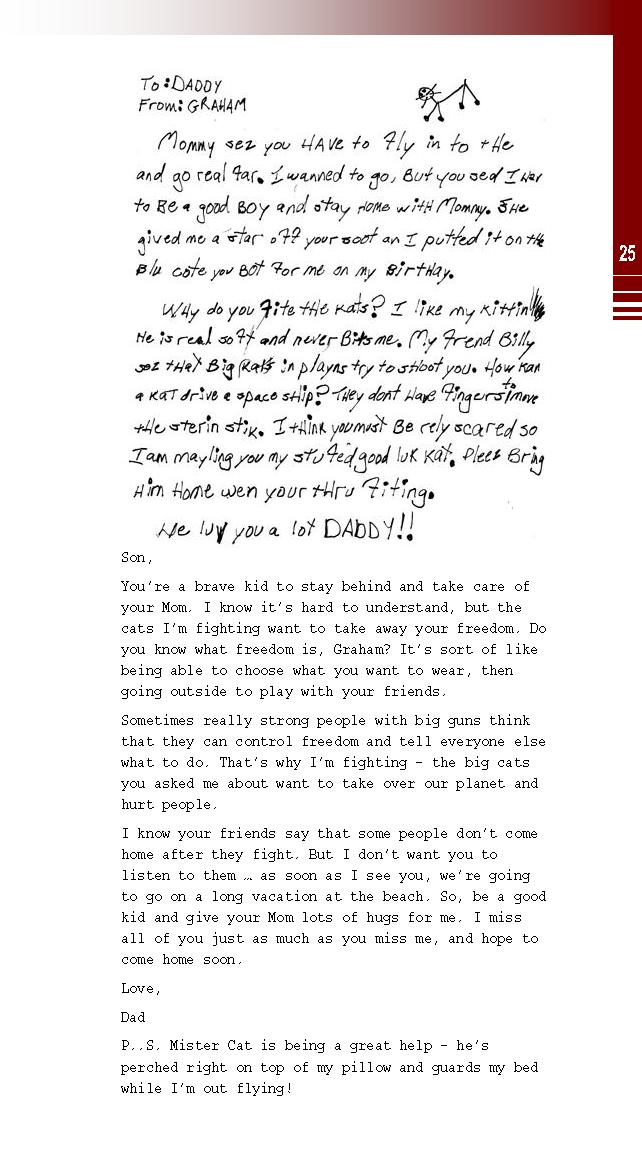 To: DADDY
From: GRAHAM
Mommy sez you HAVE to fly in to tHe
and go real far. I wanned to go, But you sed I Hav
to Be a good BOY and stay Home witH Mommy. SHe
gived me a star off your soot an I putted it on tHe
Blu cote you BOT For me on my BirtHay.
WHy do you Fite tHe Kats? I like my Kittin
He is real soft and never Bits me. My Frend Billy
sez tHat Big Kats in playns try to sHoot you. How Kan
a KAT drive e space sHip? THey dont Have Fingers to move
tHe sterin stik. I tHink you must Be rely scared so
I am mayling you my stuFed good luk Kat. Plees Bring
Him Home wen your tHru Fiting.
We luv you a lot DADDY!!
25
Son,
You're a brave kid to stay behind and take care of
your Mom. I know it's hard to understand, but the
cats I'm fighting want to take away your freedom. Do
you know what freedom is, Graham? It's sort of like
being able to choose what you want to wear, then
going outside to play with your friends.
Sometimes really strong people with big guns think
that they can control freedom and tell everyone else
what to do. That's why I'm fighting – the big cats
you asked me about want to take over our planet and
hurt people.
I know your friends say that some people don't come
home after they fight. But I don't want you to
listen to them … as soon as I see you, we're going
to go on a long vacation at the beach. So, be a good
kid and give your Mom lots of hugs for me. I miss
all of you just as much as you miss me, and hope to
come home soon.
Love,
Dad
P..S. Mister Cat is being a great help – he's
perched right on top of my pillow and guards my bed
while I'm out flying!